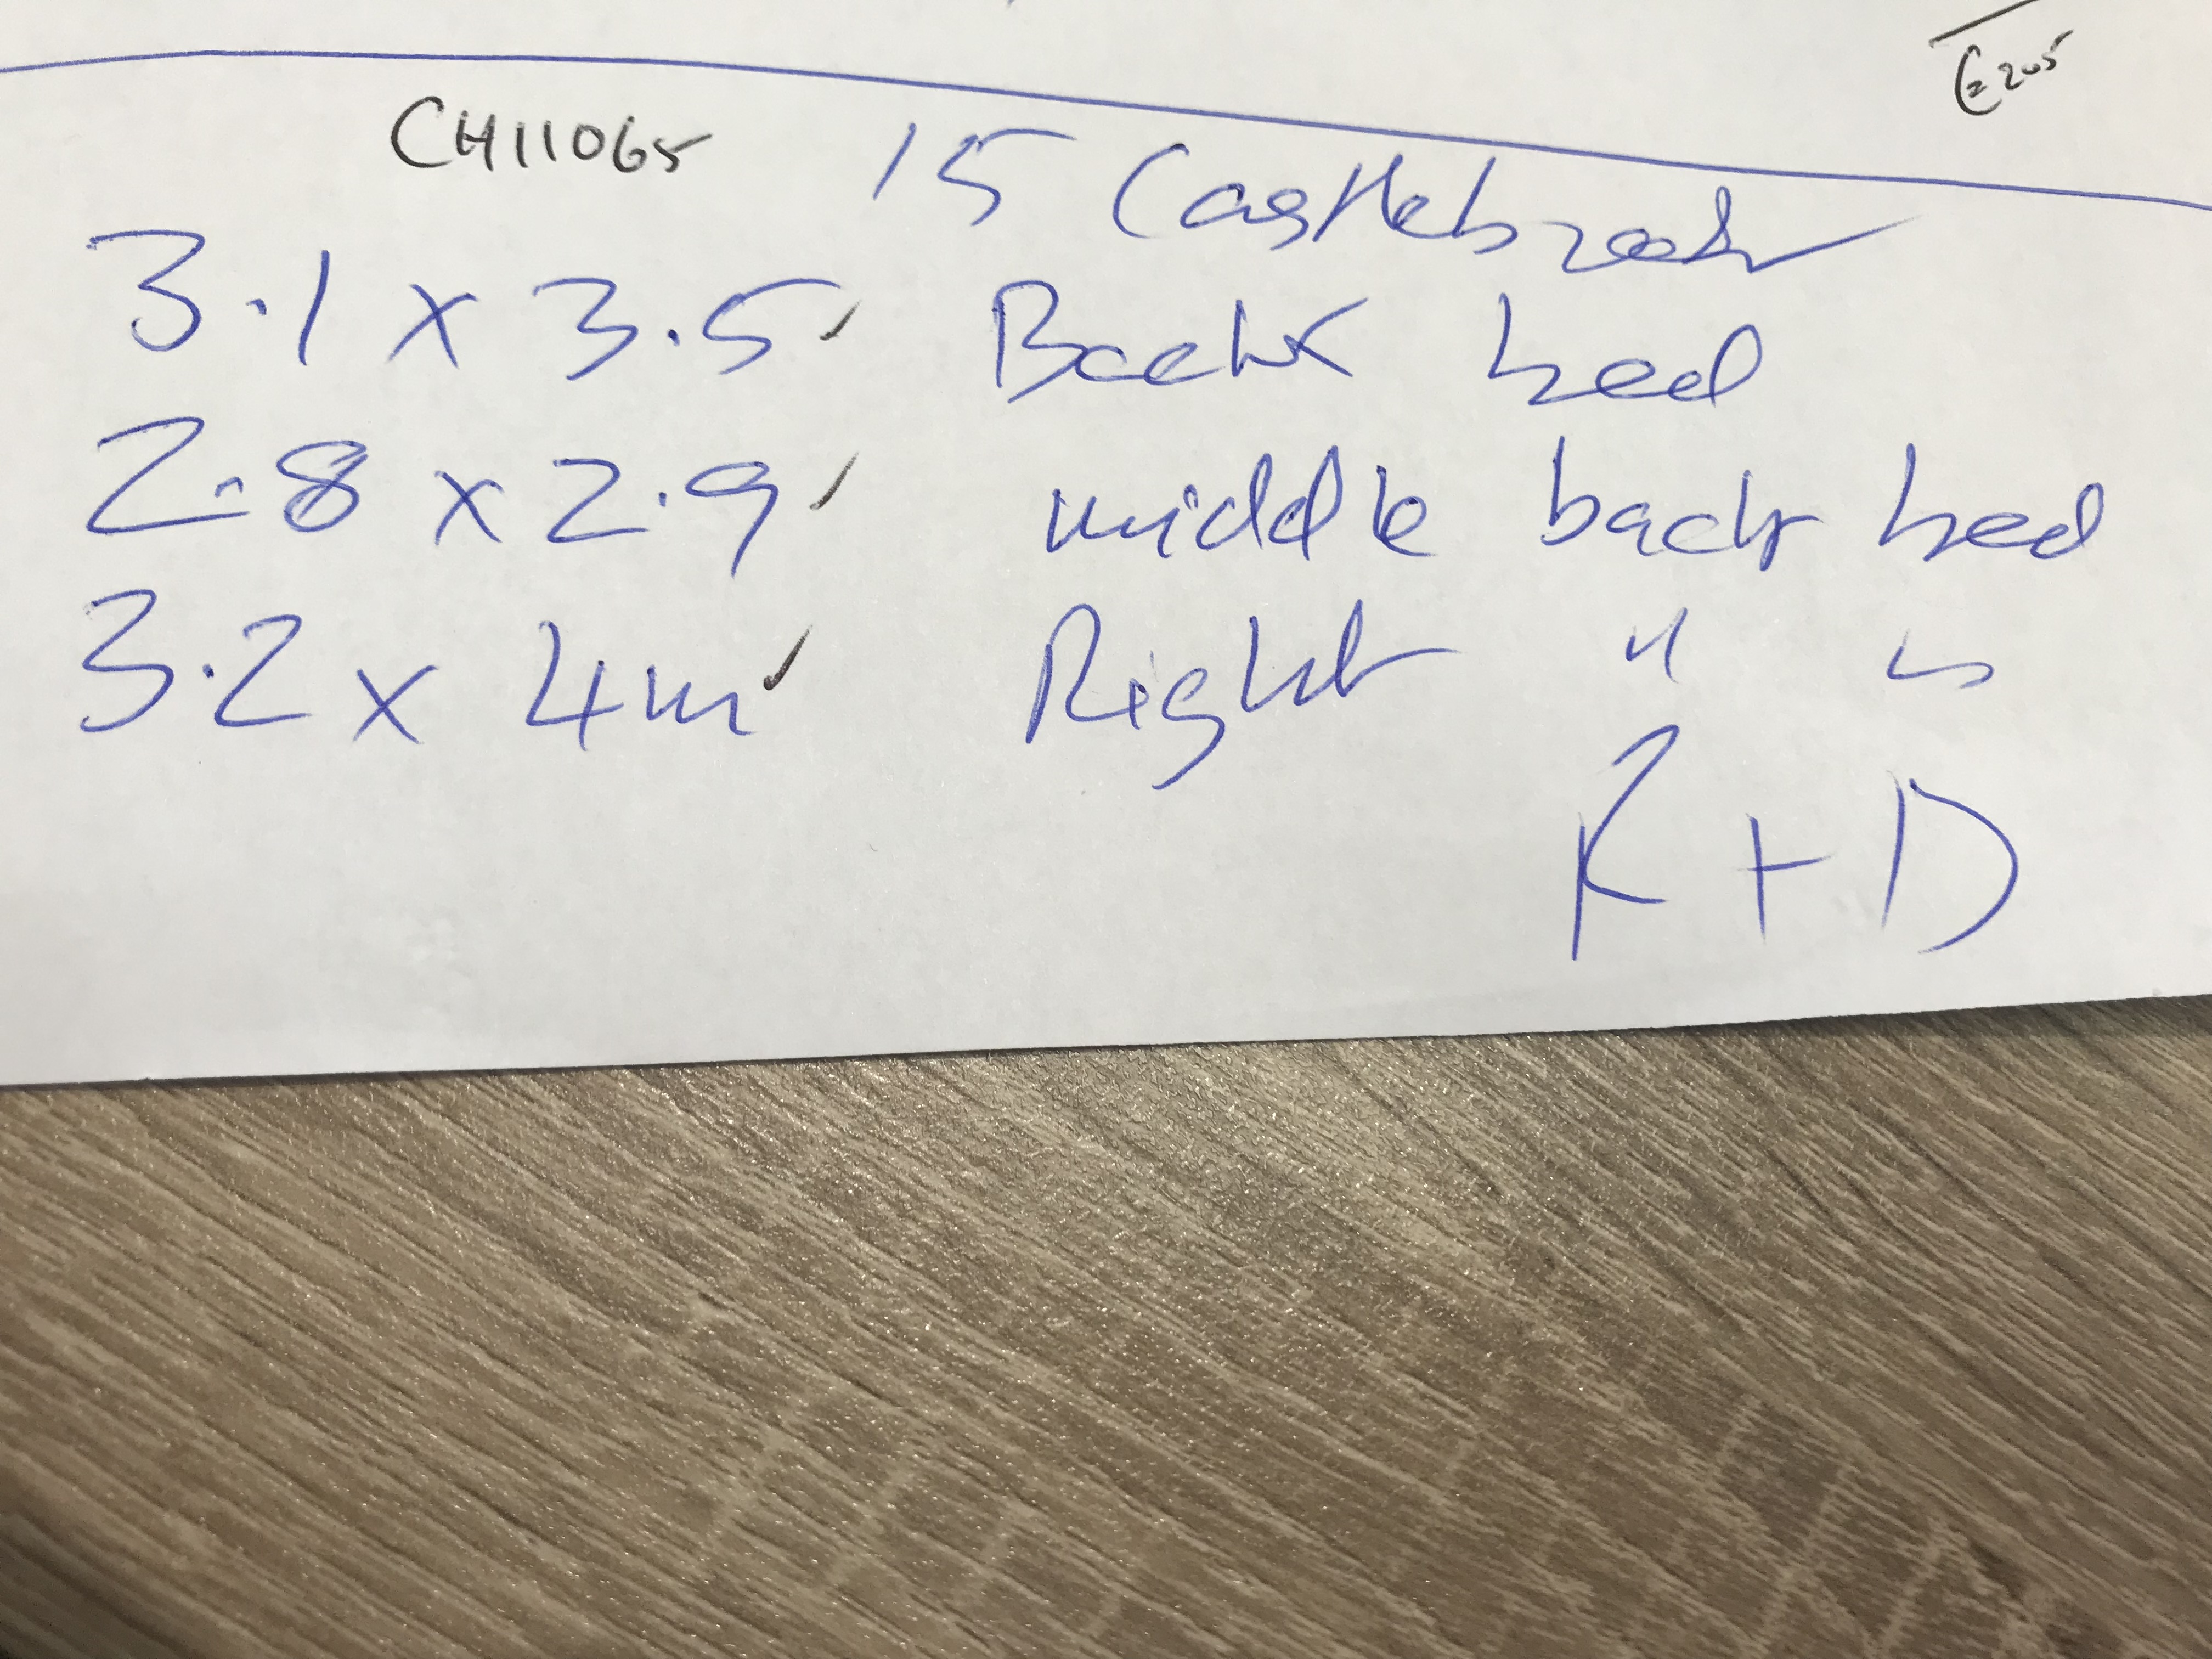 €205
CH11065 15 Castlebrook
3.1 x 3.5 ✓ Back bed
2.8 x 2.9 ✓ middle back bed
3.2 x 4m ✓ Right " "
K + D